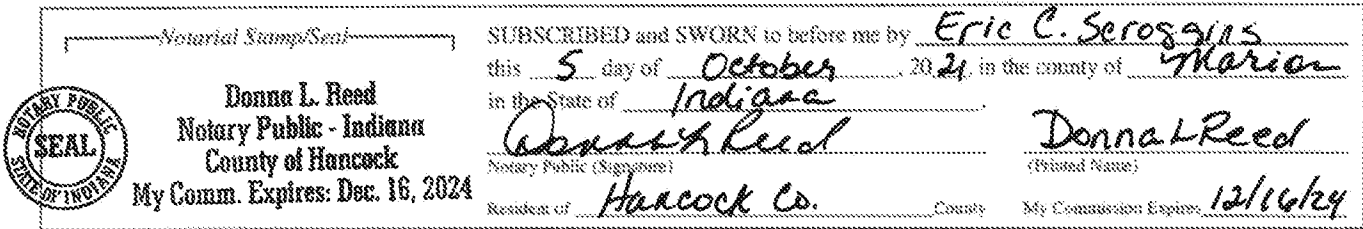 Notarial Stamp/Seal
NOTARY PUBLIC
SEAL
STATE OF INDIANA
Donna L. Reed
Notary Public - Indiana
County of Hancock
My Comm. Expires: Dec. 16, 2024
SUBSCRIBED and SWORN to before me by Eric C. Scroggins
this 5 day of October, 2021, in the county of Marion
in the State of Indiana.
Donna L Reed
Donna L Reed
Notary Public (Signature) (Printed Name)
Resident of Hancock Co. County My Commission Expires 12/16/24